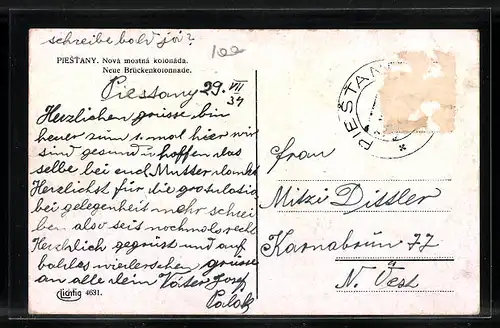 schreibe bald ja?
100
PIEŠŤANY. Nová mostná kolonáda.
Neue Brückenkolonnade.
Piestany 29. VII 34
Herzlichen grüsse bin
heuer zum 1. mal hier wir
sind gesund u. hoffen das
selbe bei euch Mutter dankt
Herzlichst für die gratulation
bei gelegenheit mehr schrei
ben also seit nochmals recht
Herzlich gegrüst und auf
baldes wiedersehen grüsse
an alle dein Vater Josef
Lichtig 4631.
PIEŠŤANY
Frau
Mitzi Dittler
Karnabrun 77
N. Öest